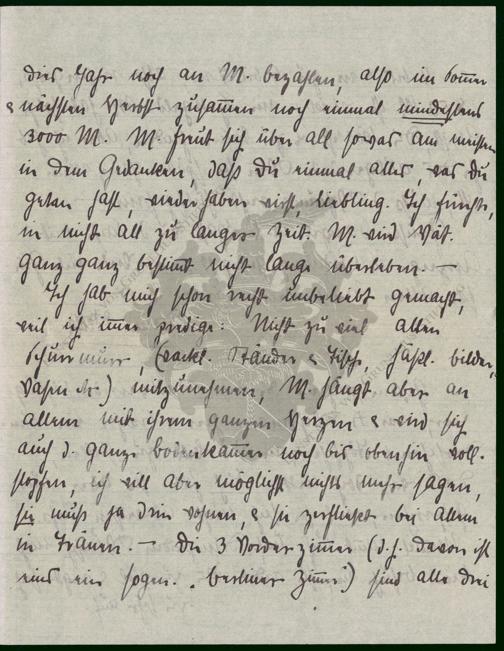 dies Jahr noch an M. bezahlen, also im Sommer
& nächsten Herbst zusam̅en noch einmal mindestens
3000 M. M. freut sich über all sowas am meisten
in dem Gedanken, daß du einmal alles, was du
getan hast, wiederhaben wirst, liebling. Ich fürchte,
in nicht all zu langer Zeit. M. wird Vat.
ganz ganz bestim̅t nicht lange überleben. —
Ich hab mich schon recht unbeliebt gemacht,
weil ich im̅er predige: Nicht zu viel alten
Schurrmurr, (wackl. Ständer & Tische, häßl. bilder,
Vasen etc.) mitzunehmen, M. hängt aber an
allem mit ihrem ganzen Herzen & wird sich
auch d. ganze bodenkam̅er noch bis obenhin voll-
stopfen, ich will aber möglichst nichts mehr sagen,
sie muß ja drin wohnen, & sie zerfließt bei Allem
in Tränen. — Die 3 Vorderzim̅er (d. h. davon ist
eins ein sogen. „berliner Zim̅er") sind alle drei